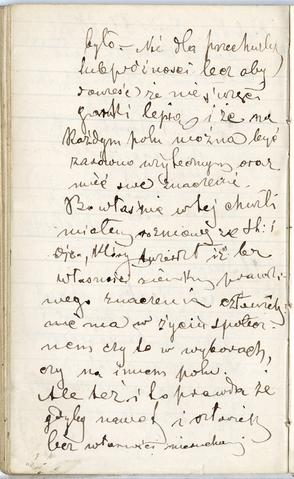 było – Nie dla przechwły
lub próżności lecz aby
dowieść że nie s
garstki lepią i że na
Każdym polu można być
zarówno użytecznym oraz
mieć swe znaczenie.
Bo właśnie w tej chwili
miałem rozmowę ze St. i
Ojc., który twierdzi iż bez
własności ziemskiej prawdzi-
wego znaczenia człowiek
nie ma w życiu społecz-
nem czy to w wyborach,
czy na innem polu.
Ale też i to prawda że
gdyby nawet i
bez własności